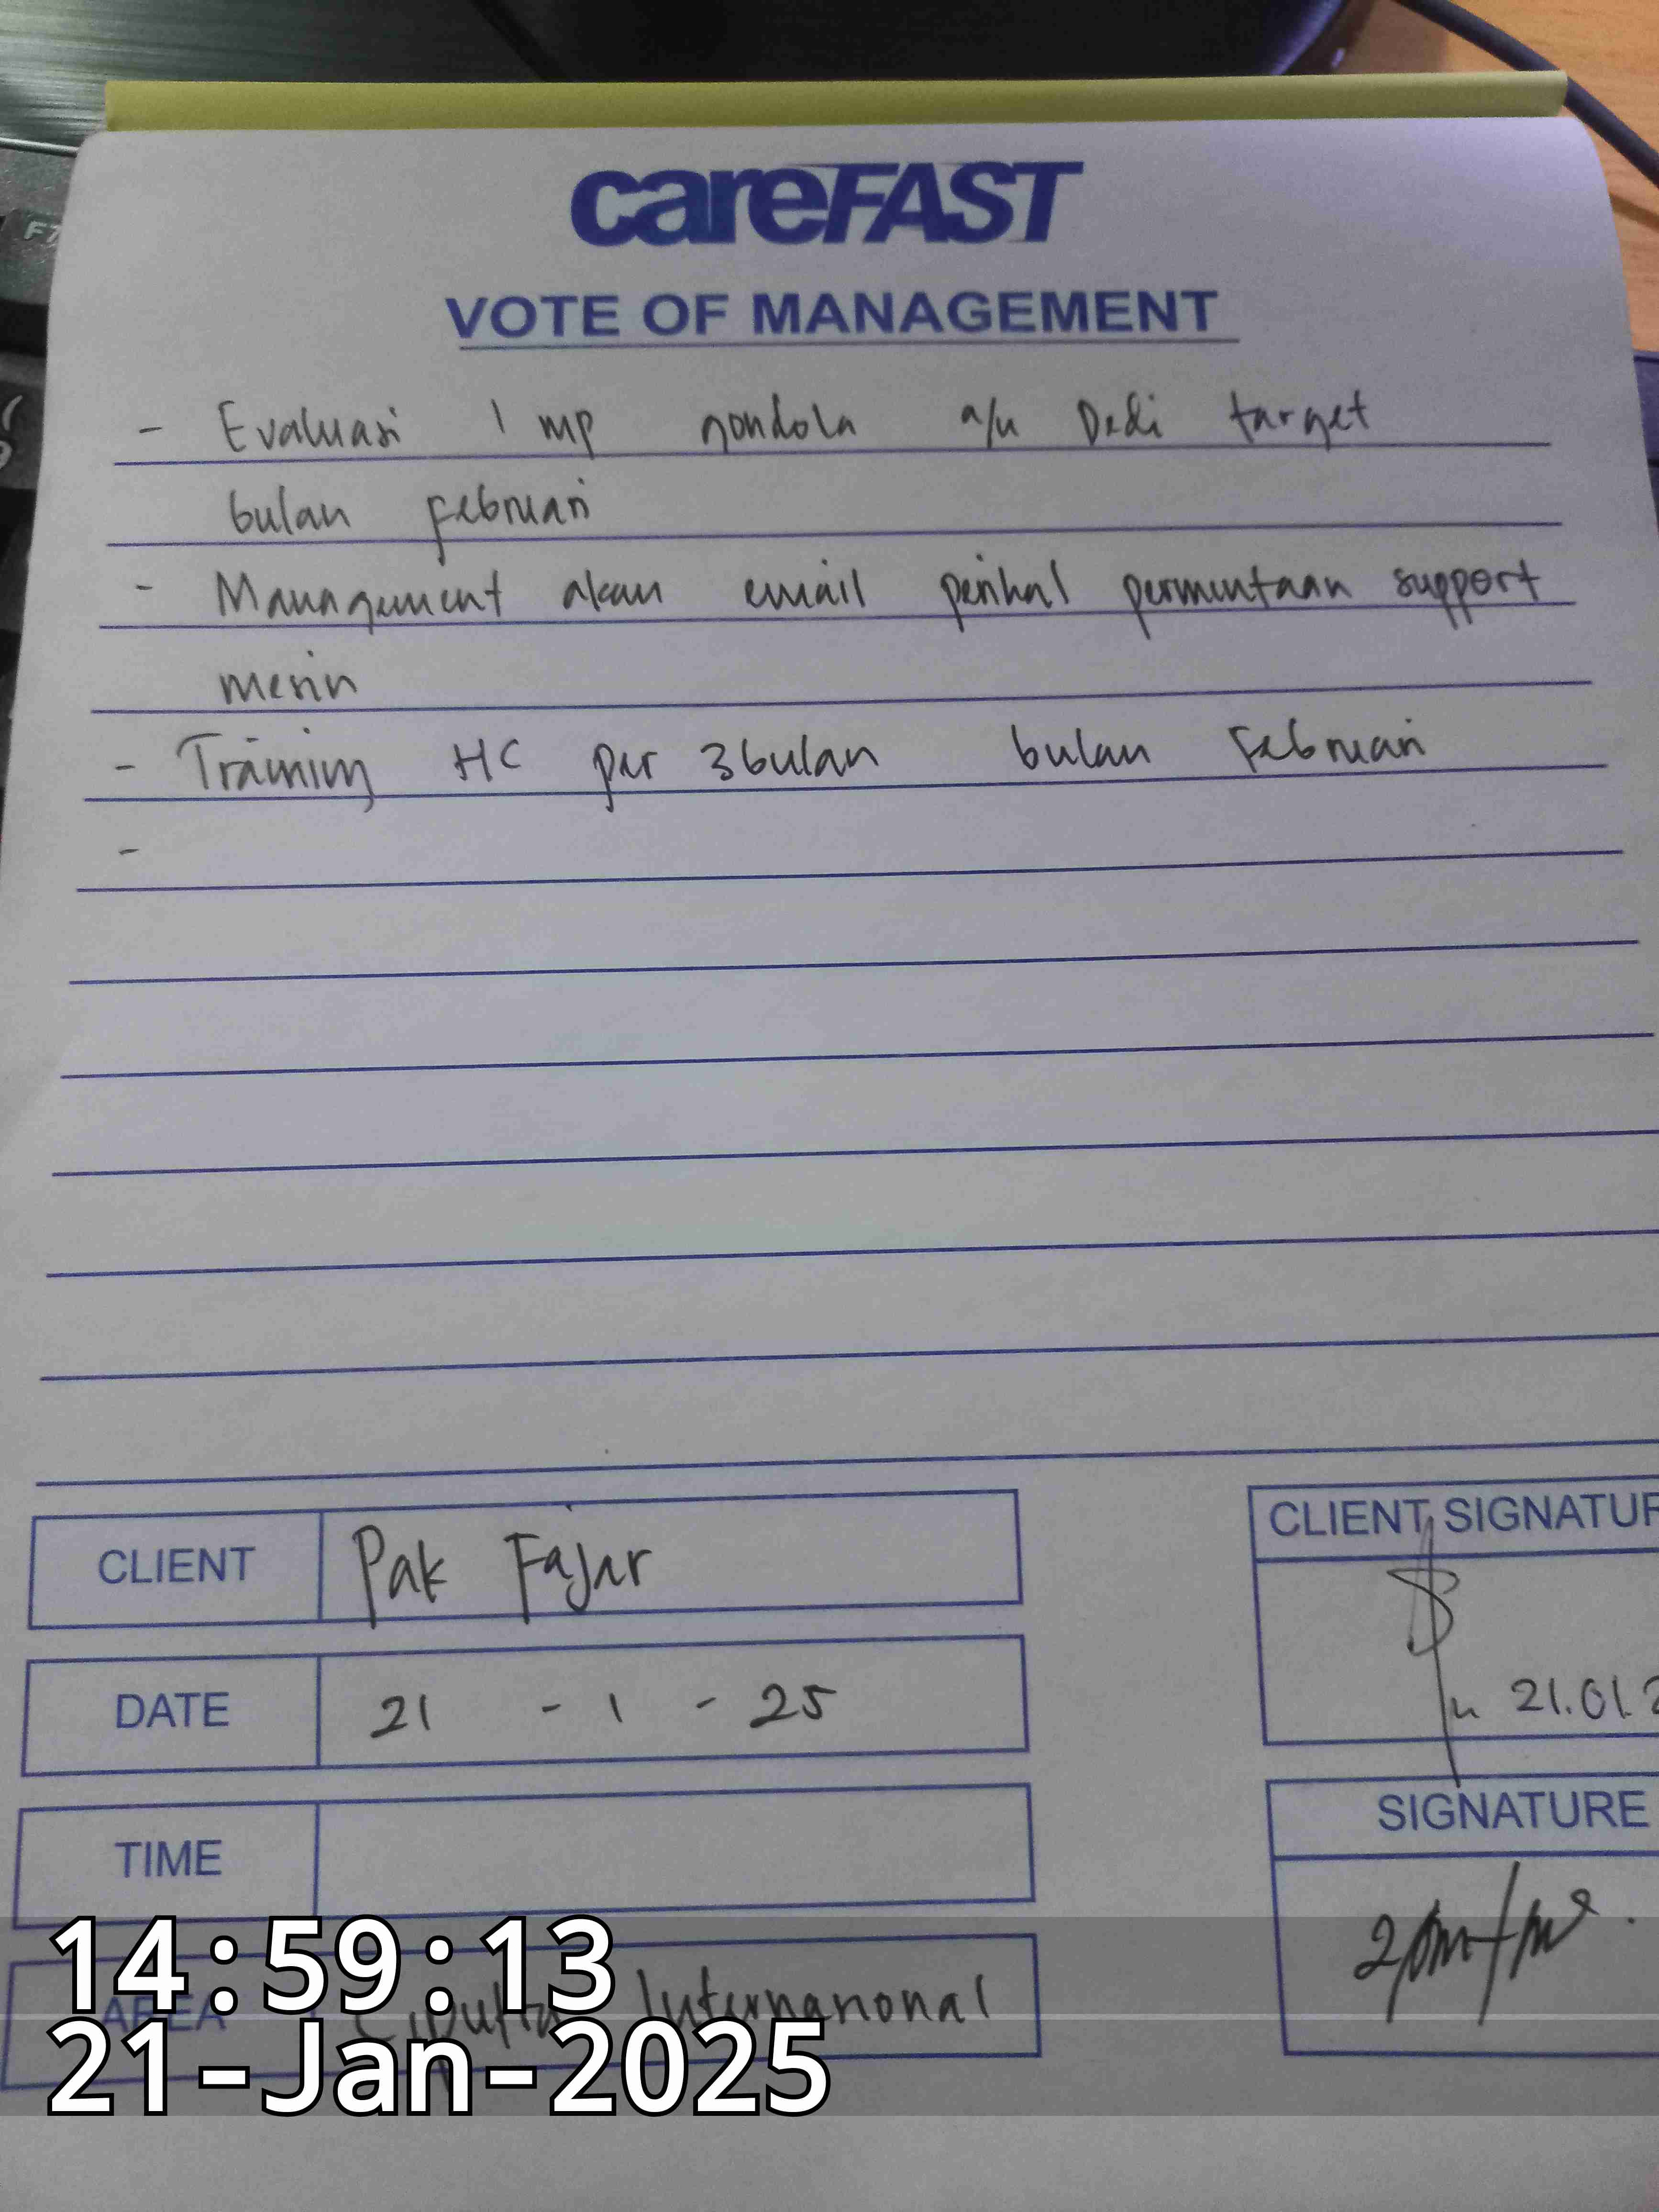 F7
careFAST
VOTE OF MANAGEMENT
- Evaluasi 1 mp gondola a/n Dedi target
bulan Februari
- Management akan email perihal permintaan support
mesin
- Training HC per 3 bulan bulan Februari
-
CLIENT Pak Fajar
CLIENT SIGNATUR
21.01.2
DATE 21 - 1 - 25
TIME
SIGNATURE
AREA Ciputra International
14:59:13
21-Jan-2025